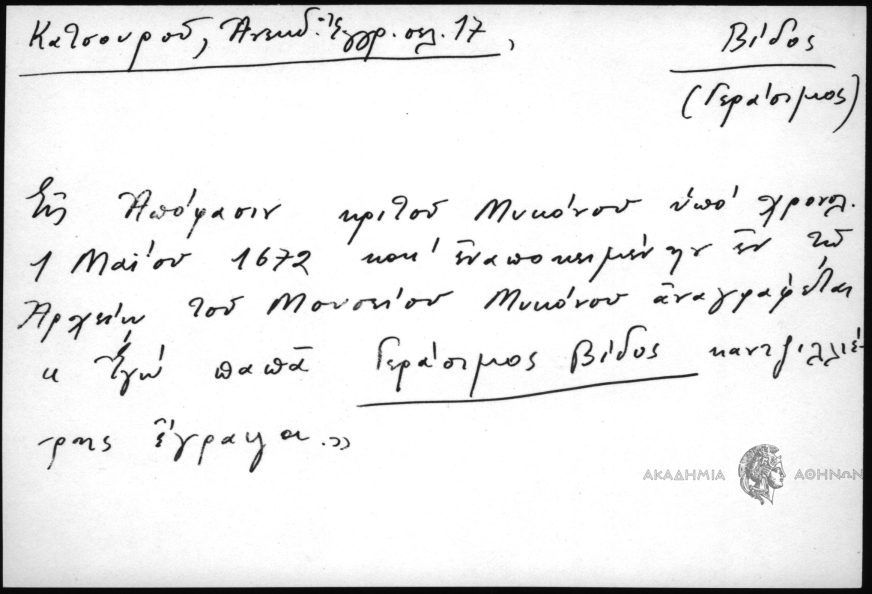 Κατσουροῦ, Ἀνεκδ. Ἔγγρ. σελ. 17,
Βίδος
(Γεράσιμος)
Εἰς Ἀπόφασιν κριτοῦ Μυκόνου ὑπό χρονολ.
1 Μαΐου 1672 καί ἐναποκειμένην ἐν τῷ
Ἀρχείῳ τοῦ Μουσείου Μυκόνου ἀναγράφεται
« Ἐγώ παπᾶ Γεράσιμος Βίδος καντζιλλιέ-
ρης ἔγραψα.»
ΑΚΑΔΗΜΙΑ ΑΘΗΝΩΝ